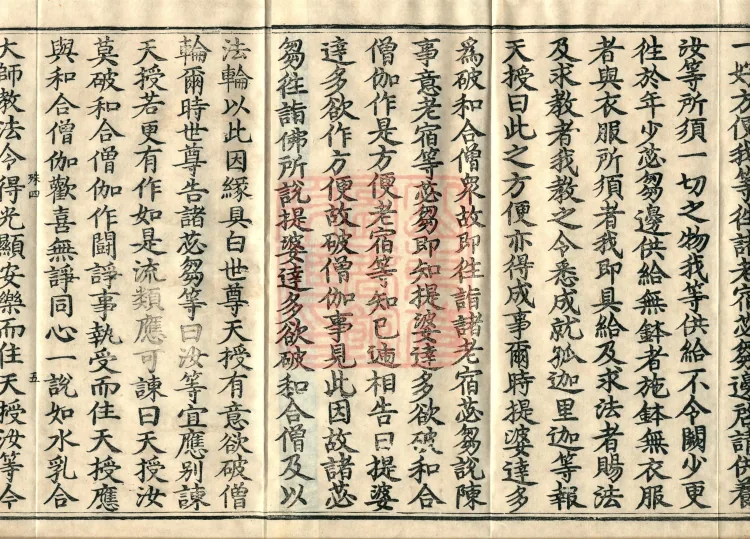 一好方便我等往詣老宿苾芻邊
汝等所須一切之物我等供給不令闕少更
往於年少苾芻邊供給無鉢者施鉢無衣服
者與衣服所須者我即具給及求法者賜法
及求教者我教之令悉成就孤迦里迦等報
天授曰此之方便亦得成事爾時提婆達多
為破和合僧衆故即往詣諸老宿苾芻說陳
事意老宿等苾芻即知提婆達多欲破和合
僧伽作是方便老宿等知已遞相告曰提婆
達多欲作方便故破僧伽事見此因故諸苾
芻往詣佛所說提婆達多欲破和合僧及以
法輪以此因緣具白世尊天授有意欲破僧
輪爾時世尊告諸苾芻等曰汝等宜應別諫
天授若更有作如是流類應可諫曰天授汝
莫破和合僧伽作鬪諍事執受而住天授應
與和合僧伽歡喜無諍同心一說如水乳合
殊四 五
大師教法令得光顯安樂而住天授汝等今